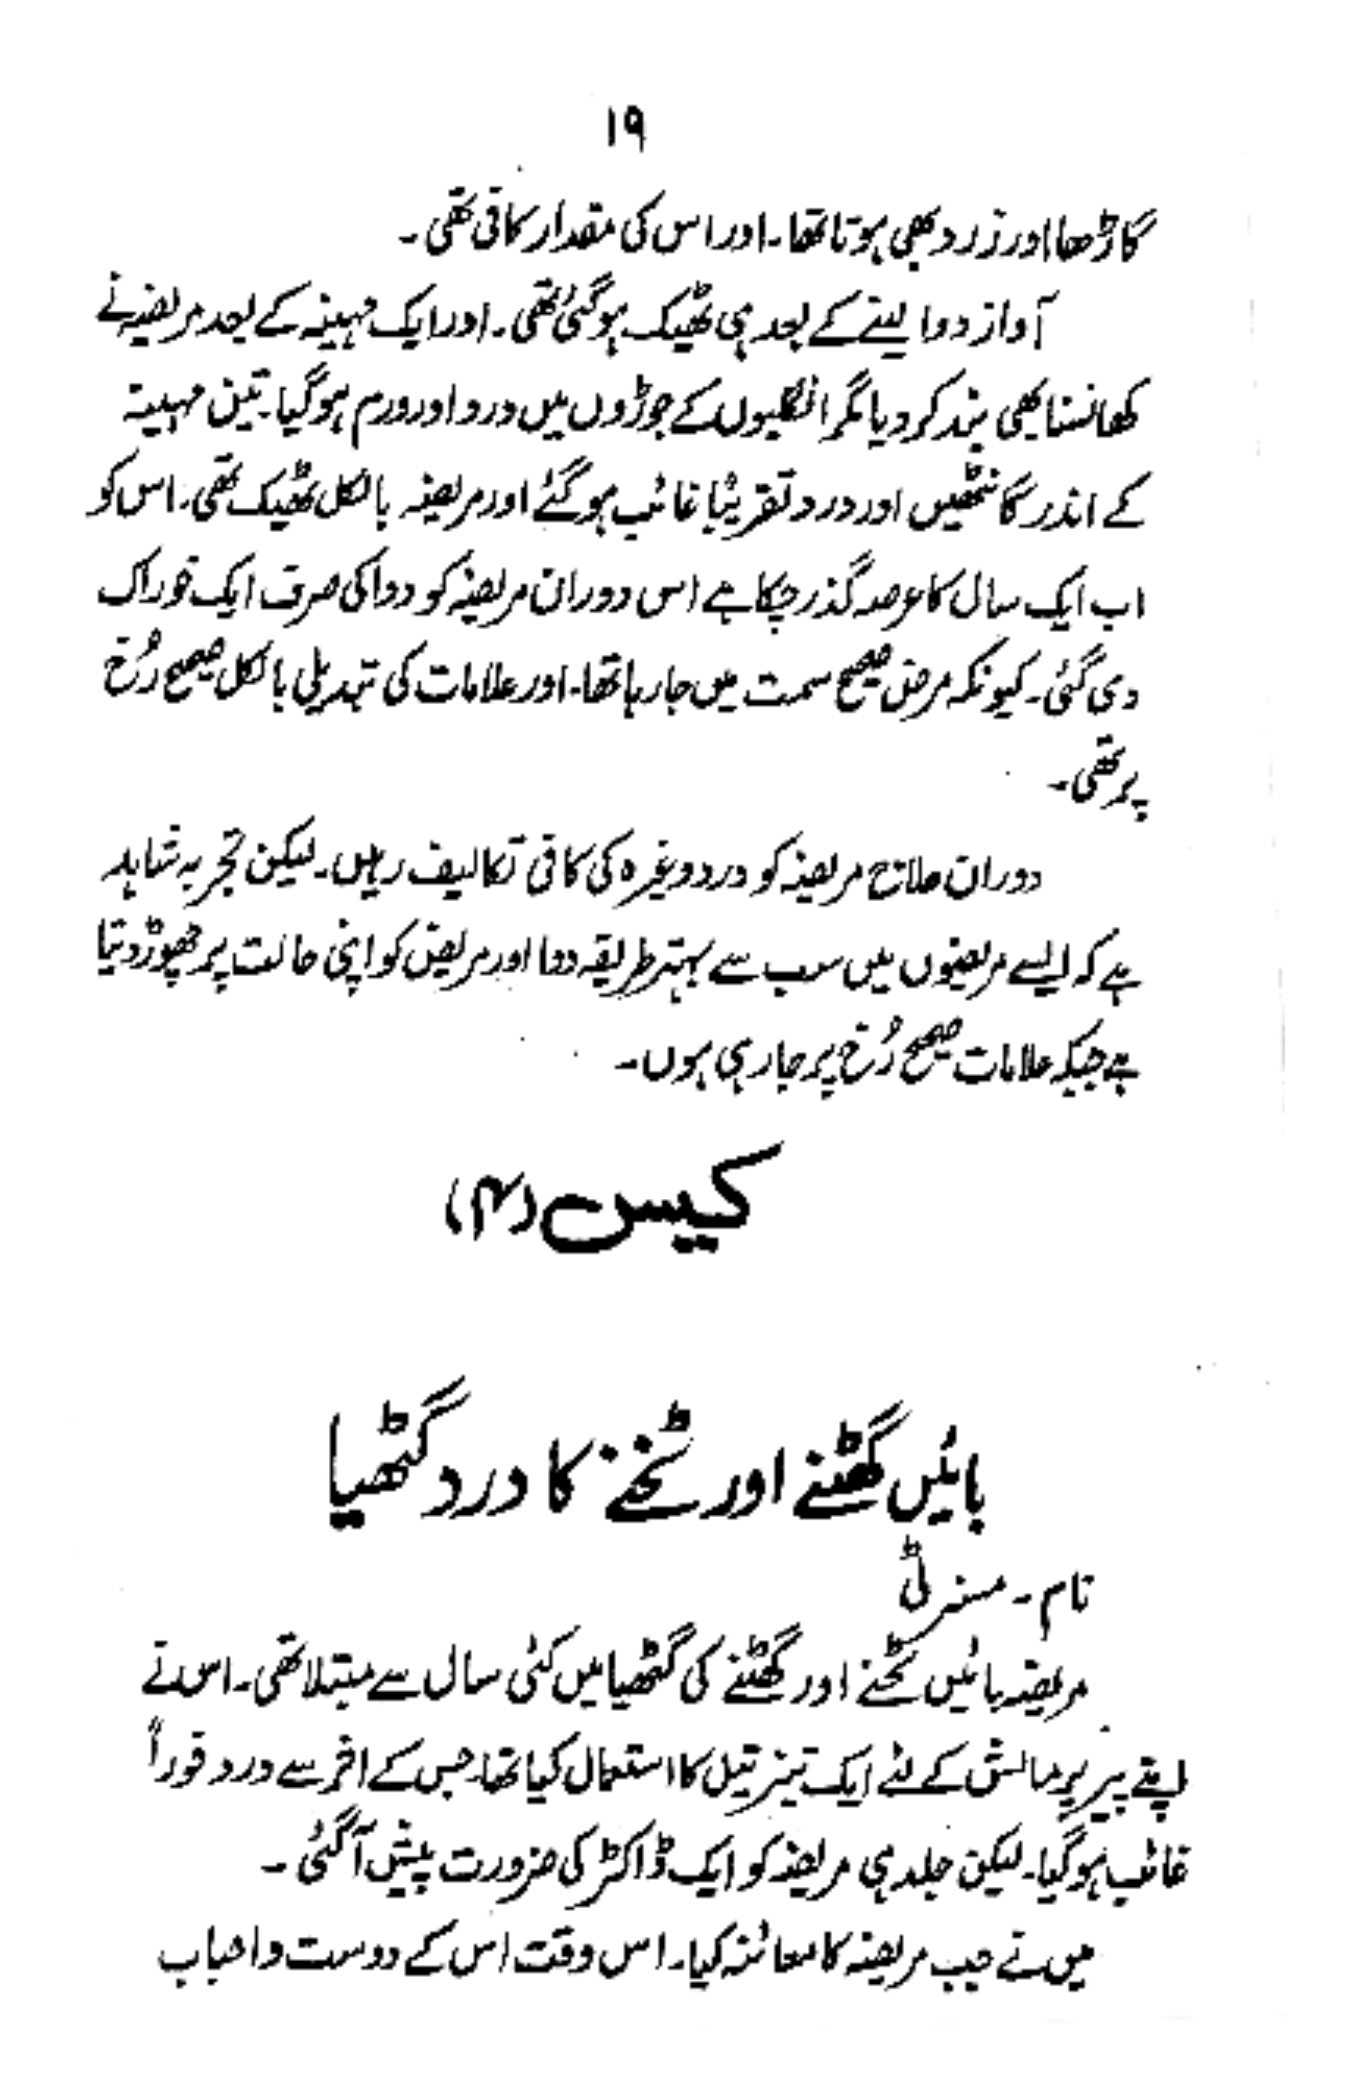 ۱۹
گاڑھا اور زرد بھی ہوتا تھا۔ اور اس کی مقدار کافی تھی۔
آواز دوا لینے کے بعد ہی ٹھیک ہو گئی تھی۔ اور ایک مہینہ کے بعد مریضہ نے
کھانسنا بھی بند کر دیا مگر انگلیوں کے جوڑوں میں درد اور ورم ہو گیا۔ تین مہینہ
کے اندر گانٹھیں اور درد تقریباً غائب ہو گئے اور مریضہ بالکل ٹھیک تھی۔ اس کو
اب ایک سال کا عرصہ گذر چکا ہے اس دوران مریضہ کو دوا کی صرف ایک خوراک
دی گئی۔ کیونکہ مرض صحیح سمت میں جا رہا تھا۔ اور علامات کی تبدیلی بالکل صحیح رُخ
پر تھی۔
دوران علاج مریضہ کو درد وغیرہ کی کافی تکالیف رہیں۔ لیکن تجربہ شاہد
ہے کہ ایسے مریضوں میں سب سے بہتر طریقہ دوا اور مریض کو اپنی حالت پر چھوڑ دینا
ہے جبکہ علامات صحیح رُخ پر جا رہی ہوں۔
کیس (۴)
بائیں گھٹنے اور ٹخنے کا درد گٹھیا
نام۔ مسز ٹی
مریضہ بائیں ٹخنے اور گھٹنے کی گٹھیا میں کئی سال سے مبتلا تھی۔ اس نے
اپنے پیر پر مالش کے لئے ایک تیز تیل کا استعمال کیا تھا۔ جس کے اثر سے درد فوراً
غائب ہو گیا۔ لیکن جلد ہی مریضہ کو ایک ڈاکٹر کی ضرورت پیش آ گئی۔
میں نے جب مریضہ کا معائنہ کیا۔ اس وقت اس کے دوست و احباب